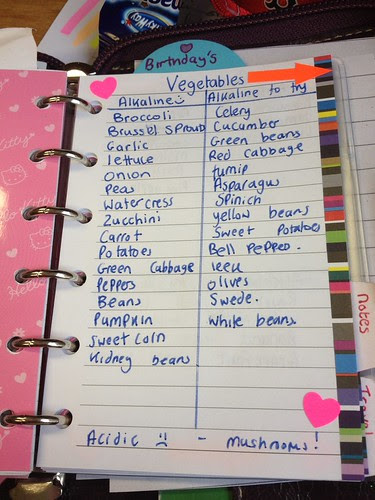 Birthday's
Vegetables
Alkaline :)
Broccoli
Brussel Sproud
Garlic
lettuce
onion
Peas
Watercress
Zucchini
Carrot
Potatoes
Green Cabbage
Peppers
Beans
Pumpkin
sweet Corn
Kidney beans
Alkaline to try
Celery
Cucumber
Green beans
Red Cabbage
turnip
Asparagus
Spinich
yellow beans
Sweet Potatoes
Bell Pepped.
leek
olives
Swede.
white beans
Acidic :( - mushrooms!
Notes